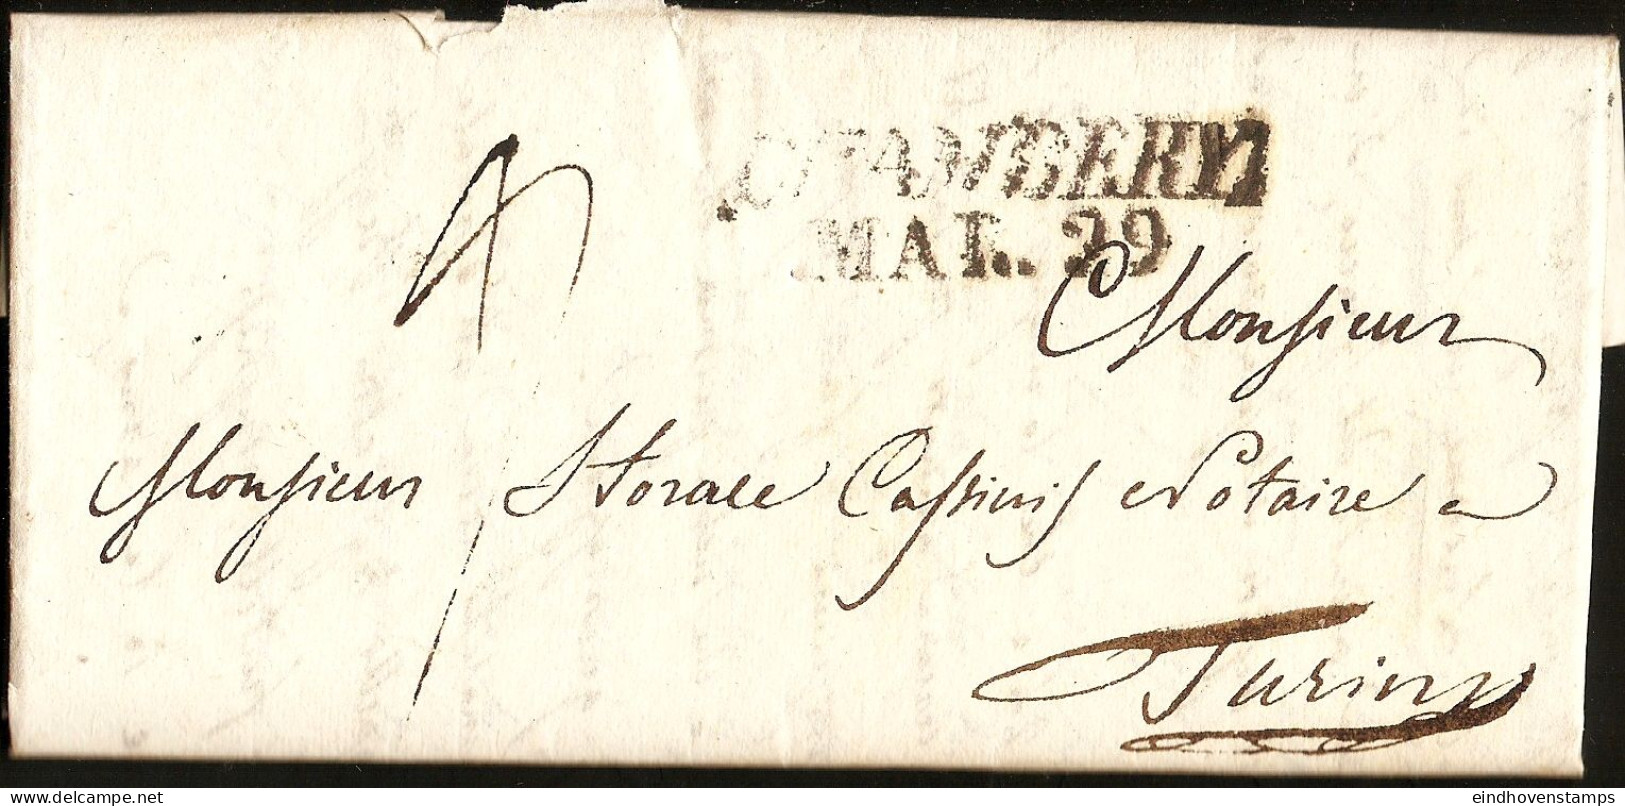 CHAMBERY
MAR. 29
4
Monsieur
Monsieur Storace Cassinis Notaire a
Turin
posted for sale on delcampe.net
eindhovenstamps